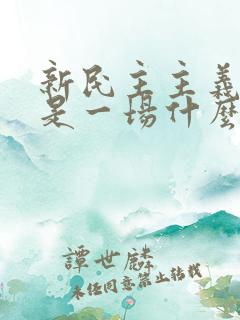 新民主主義
是一場什麼
譚世麟
未经同意禁止转载